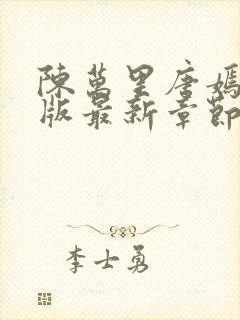 陳萬里唐嫣
版最新章節
李士勇